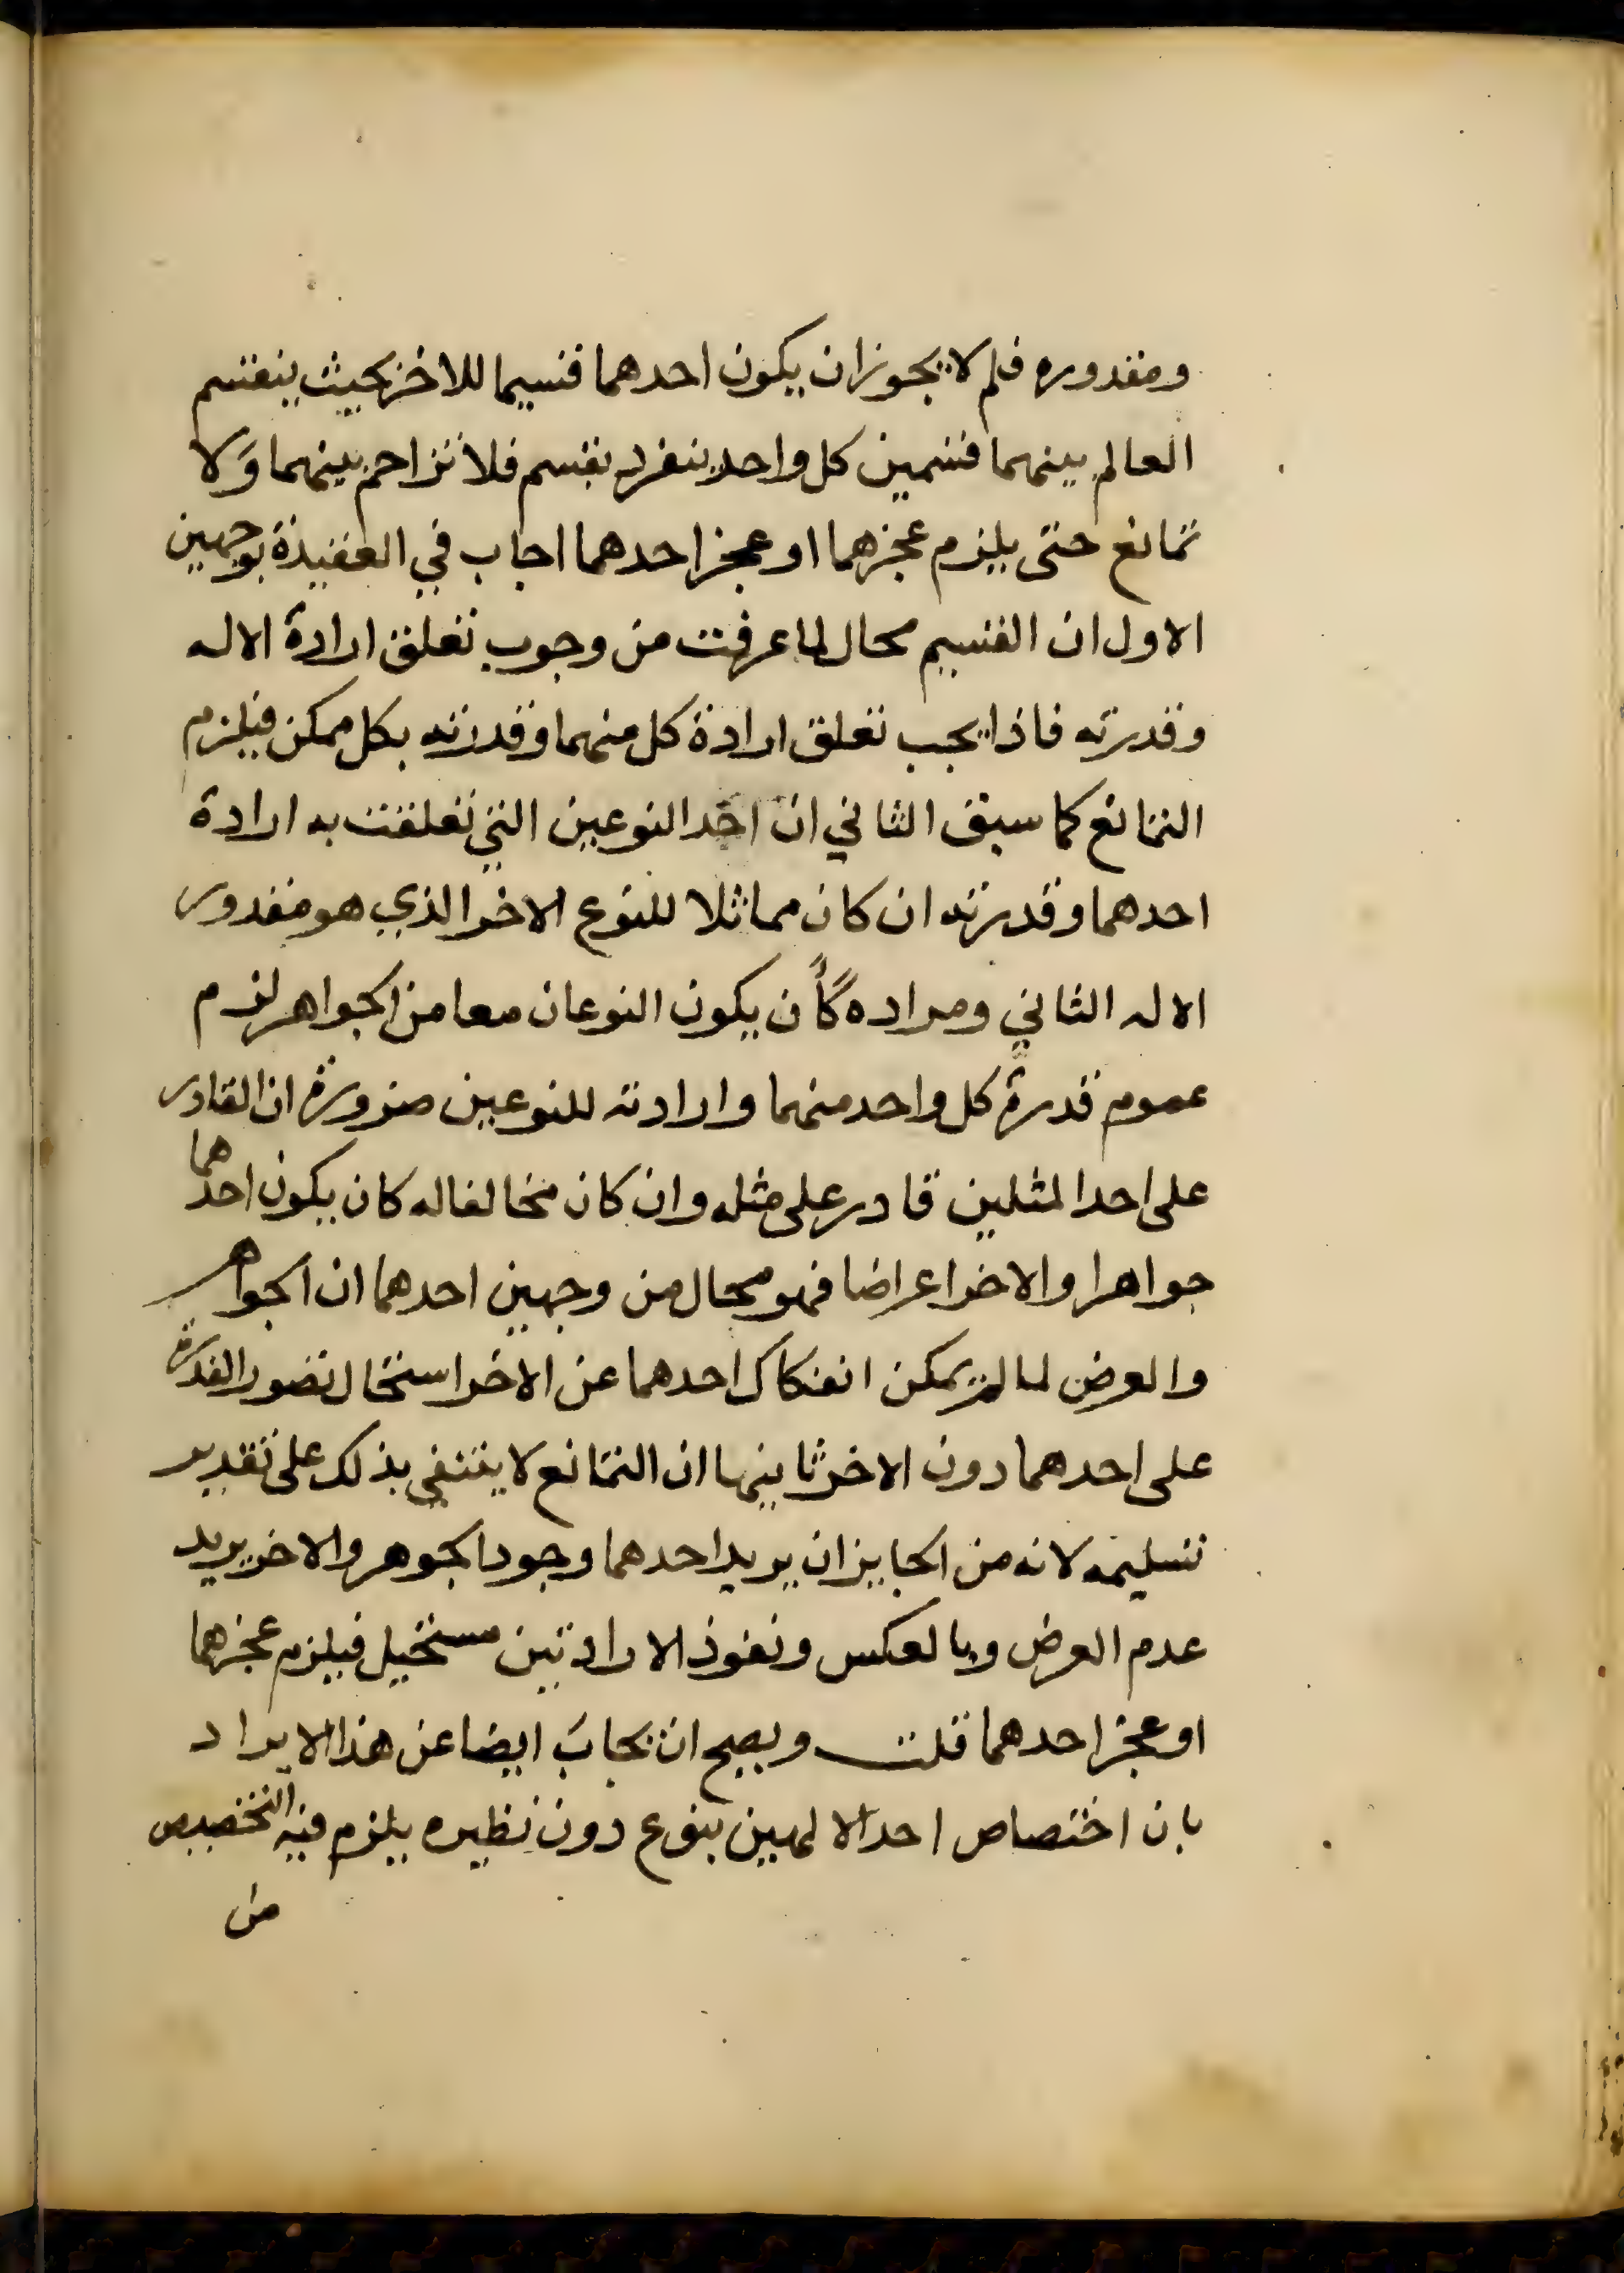 ومقدوره فلم لا يجوز ان يكون احدهما قسيما للاخر بحيث ينقسم
العالم بينهما قسمين كل واحد ينفرد بقسم فلا تزاحم بينهما وَلا
تمانع حتى يلزم عجزهما او عجز احدهما اجاب في العقيدة بوجهين
الاول ان القسيم محال لما عرفت من وجوب تعلق ارادة الاله
وقدرته فاذا يجب تعلق ارادة كل منهما وقدرته بكل ممكن فيلزم
التمانع كما سبق الثاني ان احد النوعين التي تعلقت به ارادة
احدهما وقدرته ان كان مماثلا للنوع الاخر الذي هو مقدور
الاله الثاني ومراده كأن يكون النوعان معا من الجواهر لزم
عموم قدرة كل واحد منهما وارادته للنوعين ضرورة ان القادر
على احد المثلين قادر على مثله وان كان مخالفا له كان يكون احدهما
جواهرا والاخر اعراضا فهو محال من وجهين احدهما ان الجواهر
والعرض لما لم يمكن انفكاك احدهما عن الاخر استحال تصور القدرة
على احدهما دون الاخر ثانيها ان التمانع لا ينتفي بذلك على تقدير
تسليمه لانه من الجايز ان يريد احدهما وجود الجوهر والاخر يريد
عدم العرض وبالعكس ونفوذ الارادتين مستحيل فيلزم عجزهما
او عجز احدهما قلت ويصح ان يجابَ ايضا عن هذا الايراد
بان اختصاص احد الالهين بنوع دون نظيره يلزم فيه التخصيص
من